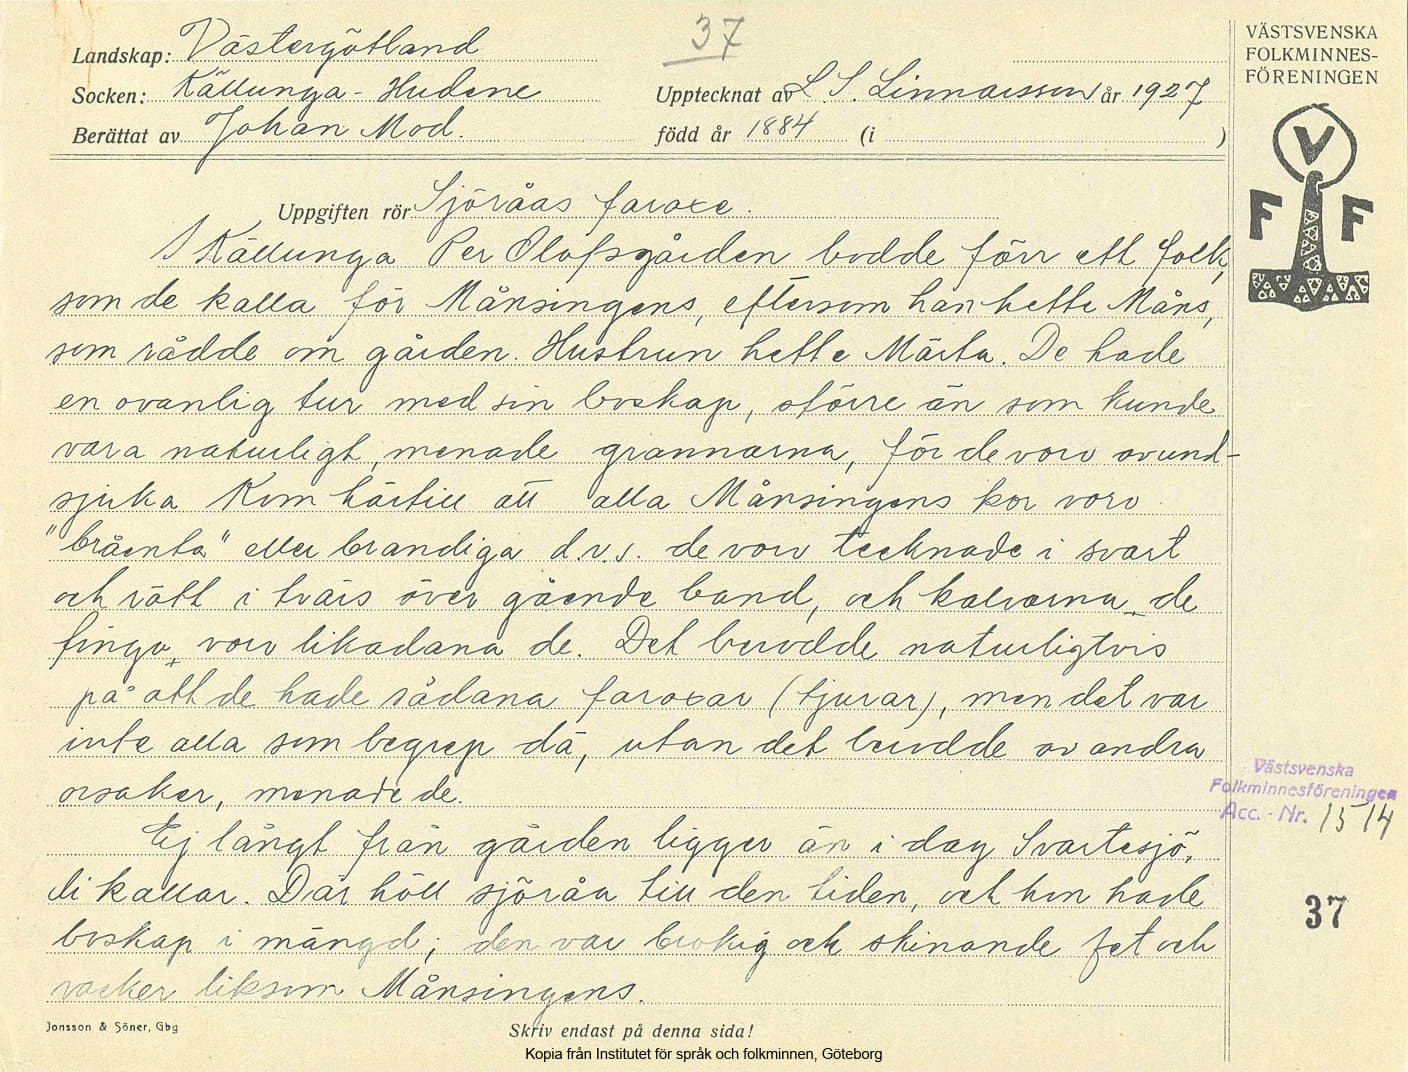 37
Landskap: Västergötland
Socken: Källunga - Hudene
Upptecknat av L. S. Linnarsson år 1927
Berättat av Johan Mod.
född år 1884 (i )
Uppgiften rör Sjöråas faroxe.
I Källunga Per Olofsgården bodde förr ett folk,
som de kalla för Månsingens, eftersom han hette Måns,
som rådde om gården. Hustrun hette Märta. De hade
en ovanlig tur med sin boskap, större än som kunde
vara naturligt, menade grannarna, för de voro avund-
sjuka Kom härtill att alla Månsingens kor voro
"bråenta" eller brandiga d.v.s. de voro tecknade i svart
och rött i tvärs över gående band, och kalvarna de
finga, voro likadana de. Det berodde naturligtvis
på att de hade sådana faroxar (tjurar), men det var
inte alla som begrep då, utan det berodde av andra
orsaker, menade de.
Ej långt från gården ligger än i dag Svartesjö,
di kallar. Där höll sjöråa till den tiden, och hon hade
boskap i mängd; den var brokig och skinande fet och
vacker liksom Månsingens.
Jonsson & Söner, Gbg
Skriv endast på denna sida!
Kopia från Institutet för språk och folkminnen, Göteborg
VÄSTSVENSKA
FOLKMINNES-
FÖRENINGEN
V
F F
Västsvenska
Folkminnesföreningen
Acc. - Nr. 1514
37